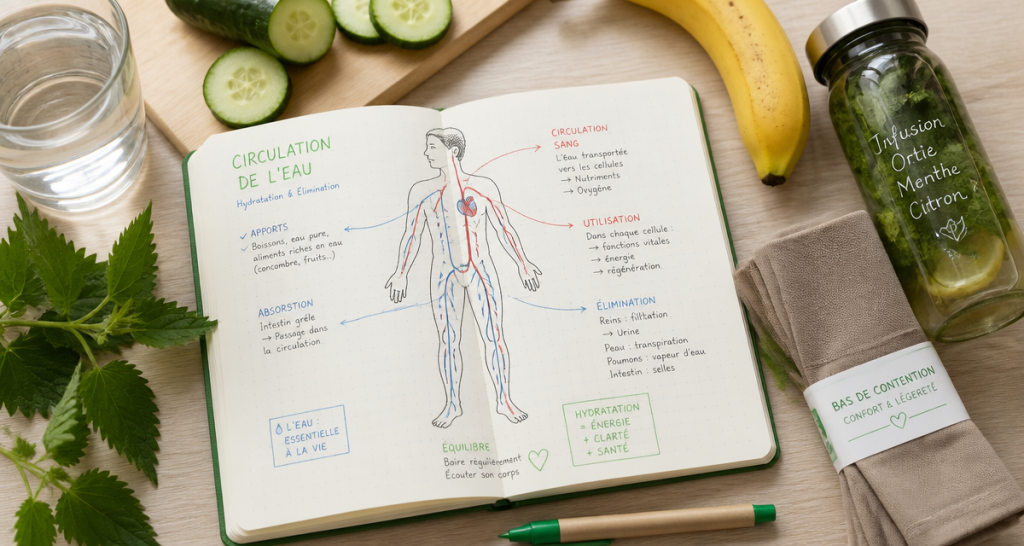 CIRCULATION
DE L'EAU
Hydratation & Élimination
APPORTS
Boissons, eau pure,
aliments riches en eau
(concombre, fruits..)
ABSORSTION
Intestin grêle
→ Passage dans
la circulation.
L'EAU :
ESSENTIELLE
À LA VIE
ÉQUILIBRE
Boire régulièrement
Écouter son corps
CIRCULATION
SANG
L'Eau transportée
vers les cellules
→ Nutriments
→ Oxygène
UTILISATION
Dans chaque cellule :
→ fonctions vitales
→ énergie
→ régénération.
ÉLIMINATION
Reins : filltation
→ Urine
Peau : transpiration
Poumons : vapeur d'eau
Intestin : selles
HYDRATATION
= ÉNERGIE
+ CLARTÉ
+ SANTÉ
Infusion
Ortie
Menthe
Citron
BAS DE CONTENTION
CONFORT & LÉGERETÉ